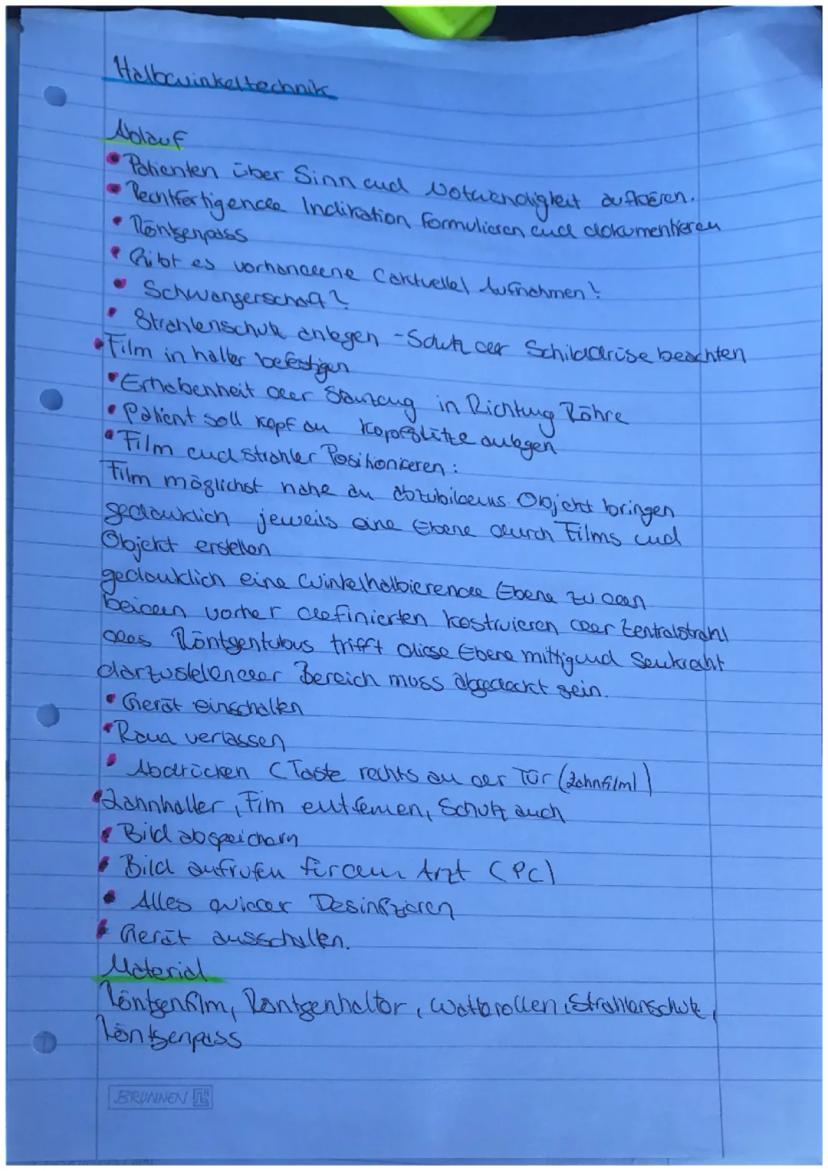 Halbwinkeltechnik
Ablauf
• Patienten über Sinn und Notwendigkeit aufklären.
• Rechtfertigende Indikation formulieren und dokumentieren
• Röntgenpass
• Gibt es vorhandene (aktuelle) Aufnahmen?
• Schwangerschaft?
• Strahlenschutz anlegen - Schutz der Schilddrüse beachten
• Film in halter befestigen
• Erhabenheit der Stanzung in Richtung Röhre
• Patient soll Kopf an Kopfstütze anlegen
• Film und strahler Positionieren:
Film möglichst nahe an Objekt bringen
gedanklich jeweils eine Ebene durch Films und
Objekt erstellen
gedanklich eine Winkelhalbierende Ebene zu den
beiden vorher definierten kostruieren der Zentralstrahl
des Röntgentubus trifft diese Ebene mittig und Senkrecht
darzustelender Bereich muss abgedeckt sein.
• Gerät einschalten
• Raum verlassen
• Abdrücken (Taste rechts an der Tür (Zahnfilm)
• Zahnhalter, Film entfernen, Schutz auch
• Bild abspeichern
• Bild aufrufen für den Arzt (PC)
• Alles wieder Desinfizieren
• Gerät ausschalten.
Material
Röntgenfilm, Röntgenhalter, Watterollen, Strahlenschutz,
Röntgenpass
BRUNNEN